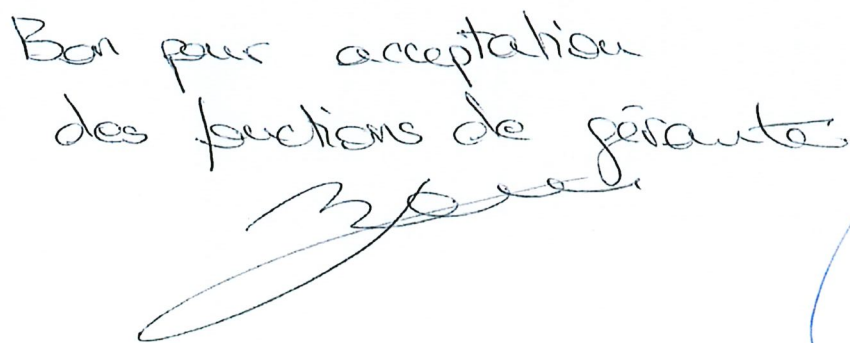 Bon pour acceptation
des fonctions de gérante